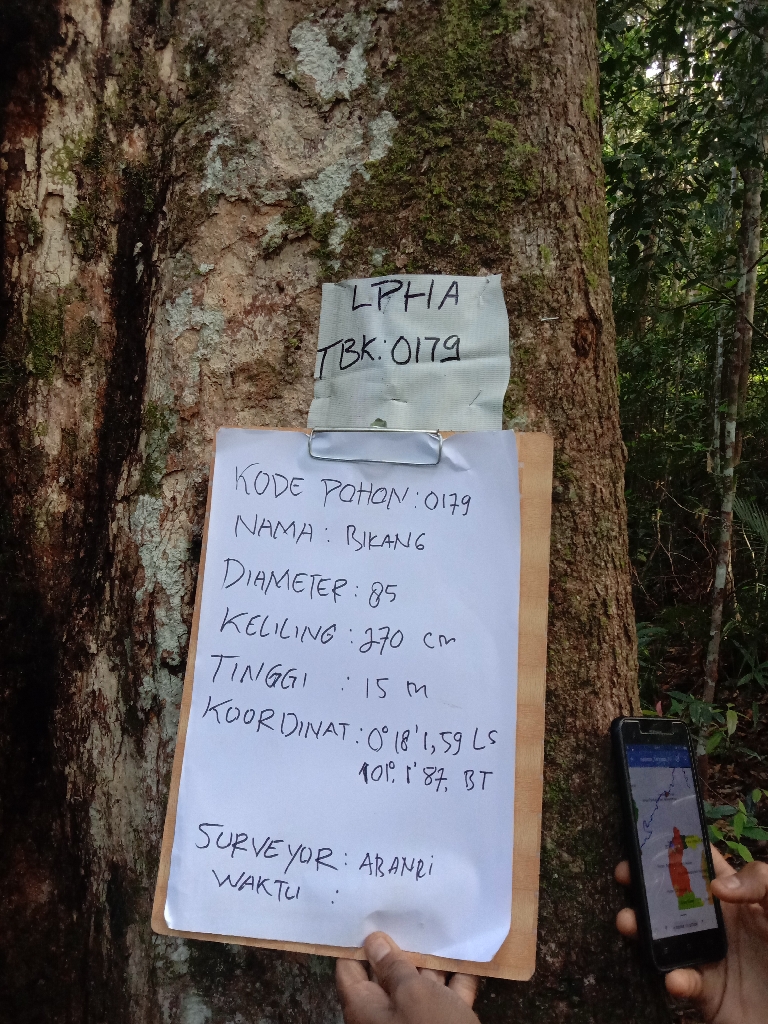 LPHA
TBK:0179
KODE POHON:0179
NAMA : BIKANG
DIAMETER: 85
KELILING : 270 cm
TINGGI : 15 m
KOORDINAT:0° 18' 1,59 LS
101°, 1' 87, BT
SURVEYOR: ABANRI
WAKTU :